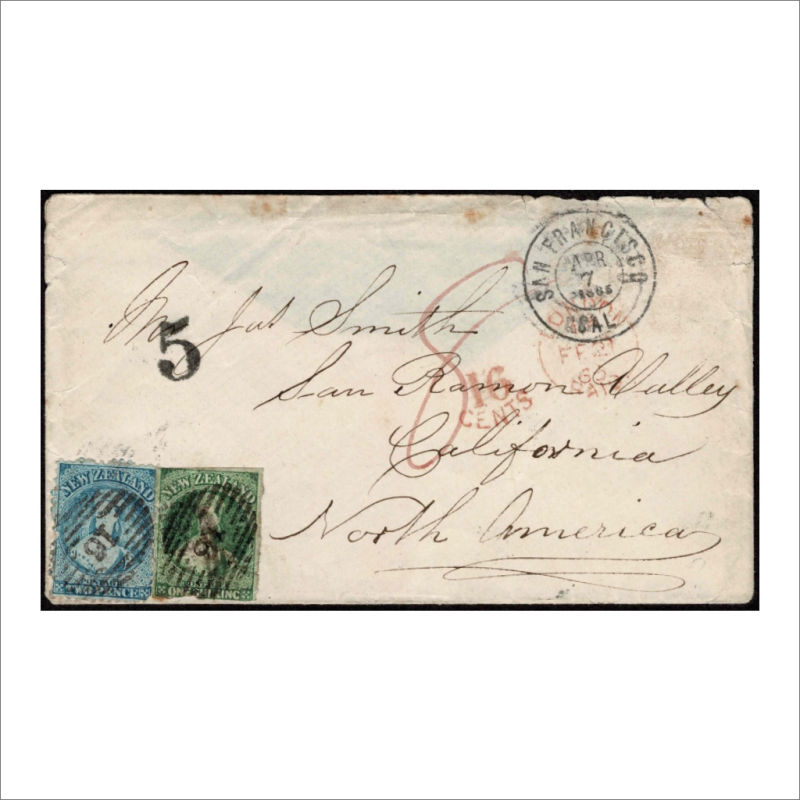 SAN FRANCISCO
APR
7
CAL
5
Mr Jas Smith
San Ramon Valley
California
North America
8
16
CENTS
PAID
NEW ZEALAND
16
POSTAGE
TWO PENCE
NEW ZEALAND